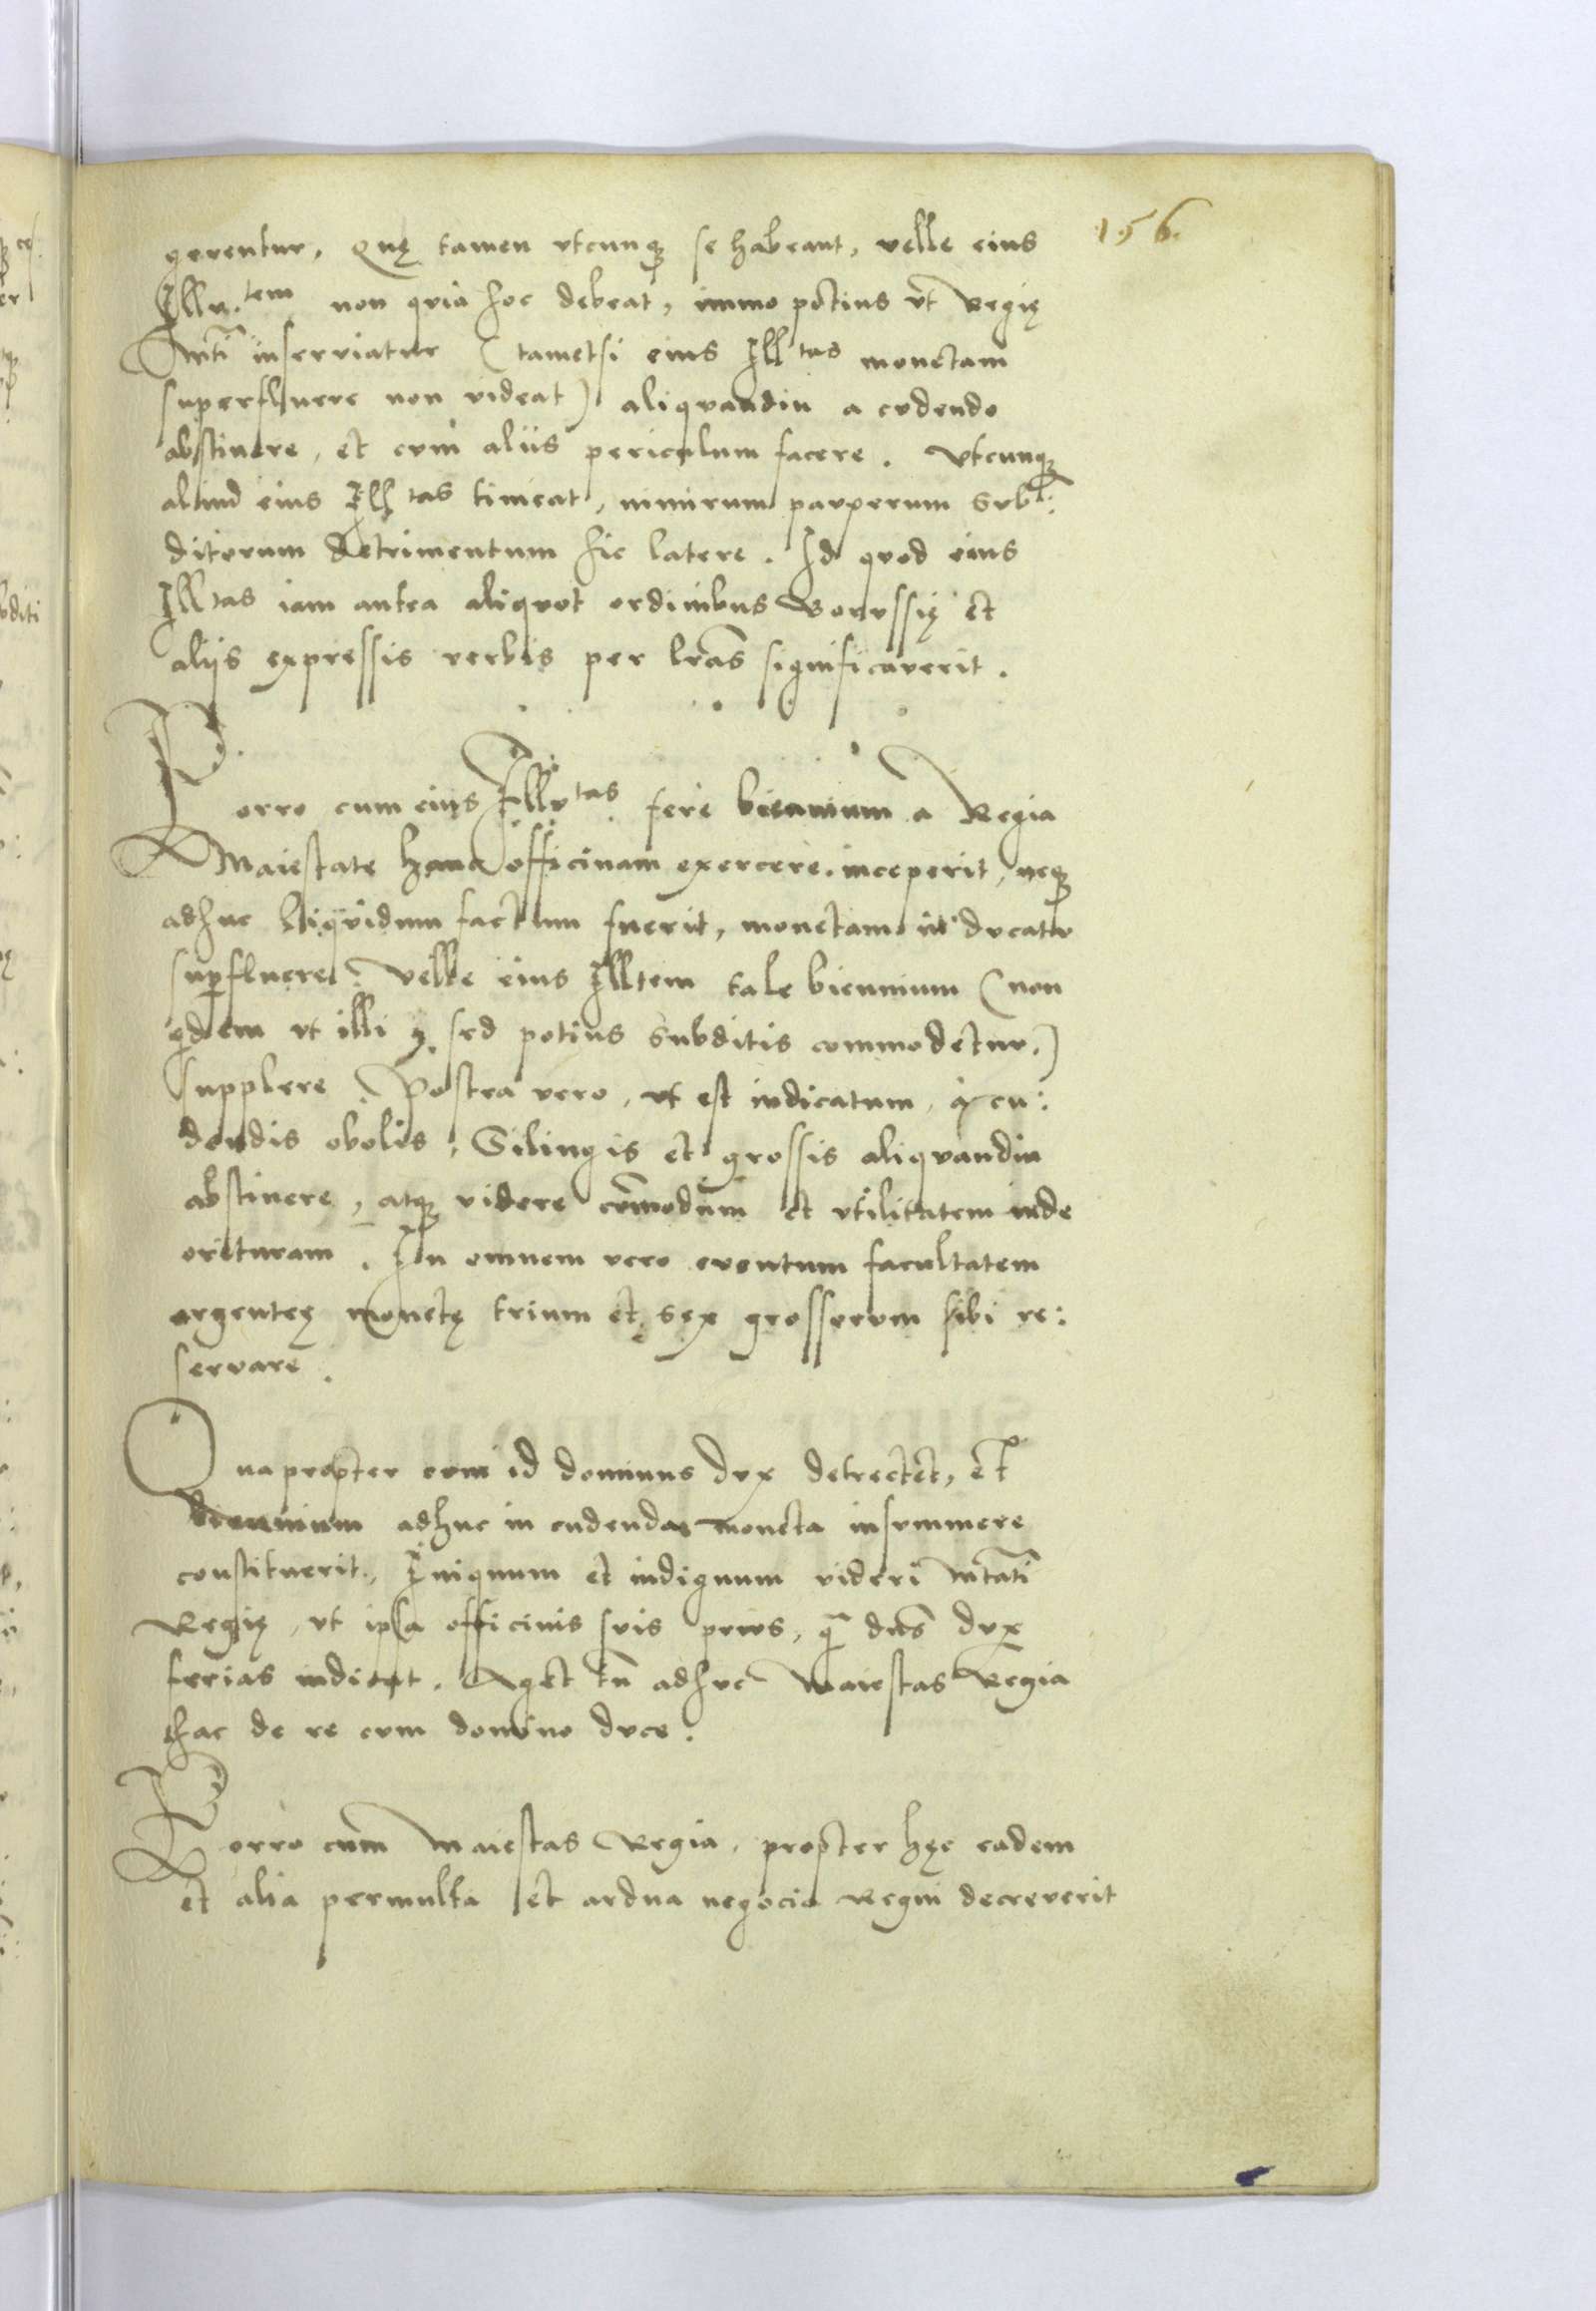 156.
gerentur, Quę tamen vtcunq se habeant, velle eius
Illu.tem non quia hoc debeat, immo potius vt Regię
Mti inseruiatur (tametsi eius Ill tas monetam
superfluere non videat) aliquandiu a cudendo
abstinere, et cum aliis periculum facere. Vtcunq
aliud eius Ill tas timeat, nimirum pauperum sub:
ditorum detrimentum hic latere. Id quod eius
Ill tas iam antea aliquot ordinibus Borussię et
aliis expressis verbis per lras significauerit.
Porro cum eius Illu tas fere biennium a Regia
Maiestate hanc officinam exercere inceperit, neq
adhuc liquidum factum fuerit, monetam in ducatu
supfluere. Velle eius Illtem tale biennium (non
qdem vt illi, sed potius subditis commodetur,)
supplere. Postea vero, vt est indicatum, a cu:
dendis obolis, Silingis et grossis aliquandiu
abstinere, atq videre commodum et vtilitatem inde
orituram. In omnem vero euentum facultatem
argenteę monetę trium et sex grossorum sibi re:
seruare.
Quapropter cum id dominus dux detrectet, et
biennium adhuc in cudenda moneta insummere
constituerit, Iniquum et indignum videri Mtati
Regię, vt ipsa officinis suis prius, q dns dux
ferias indicat. Aget tn adhuc Maiestas Regia
hac de re cum domino duce.
Porro cum Maiestas Regia, propter hęc eadem
et alia permulta et ardua negocia Regni decreuerit